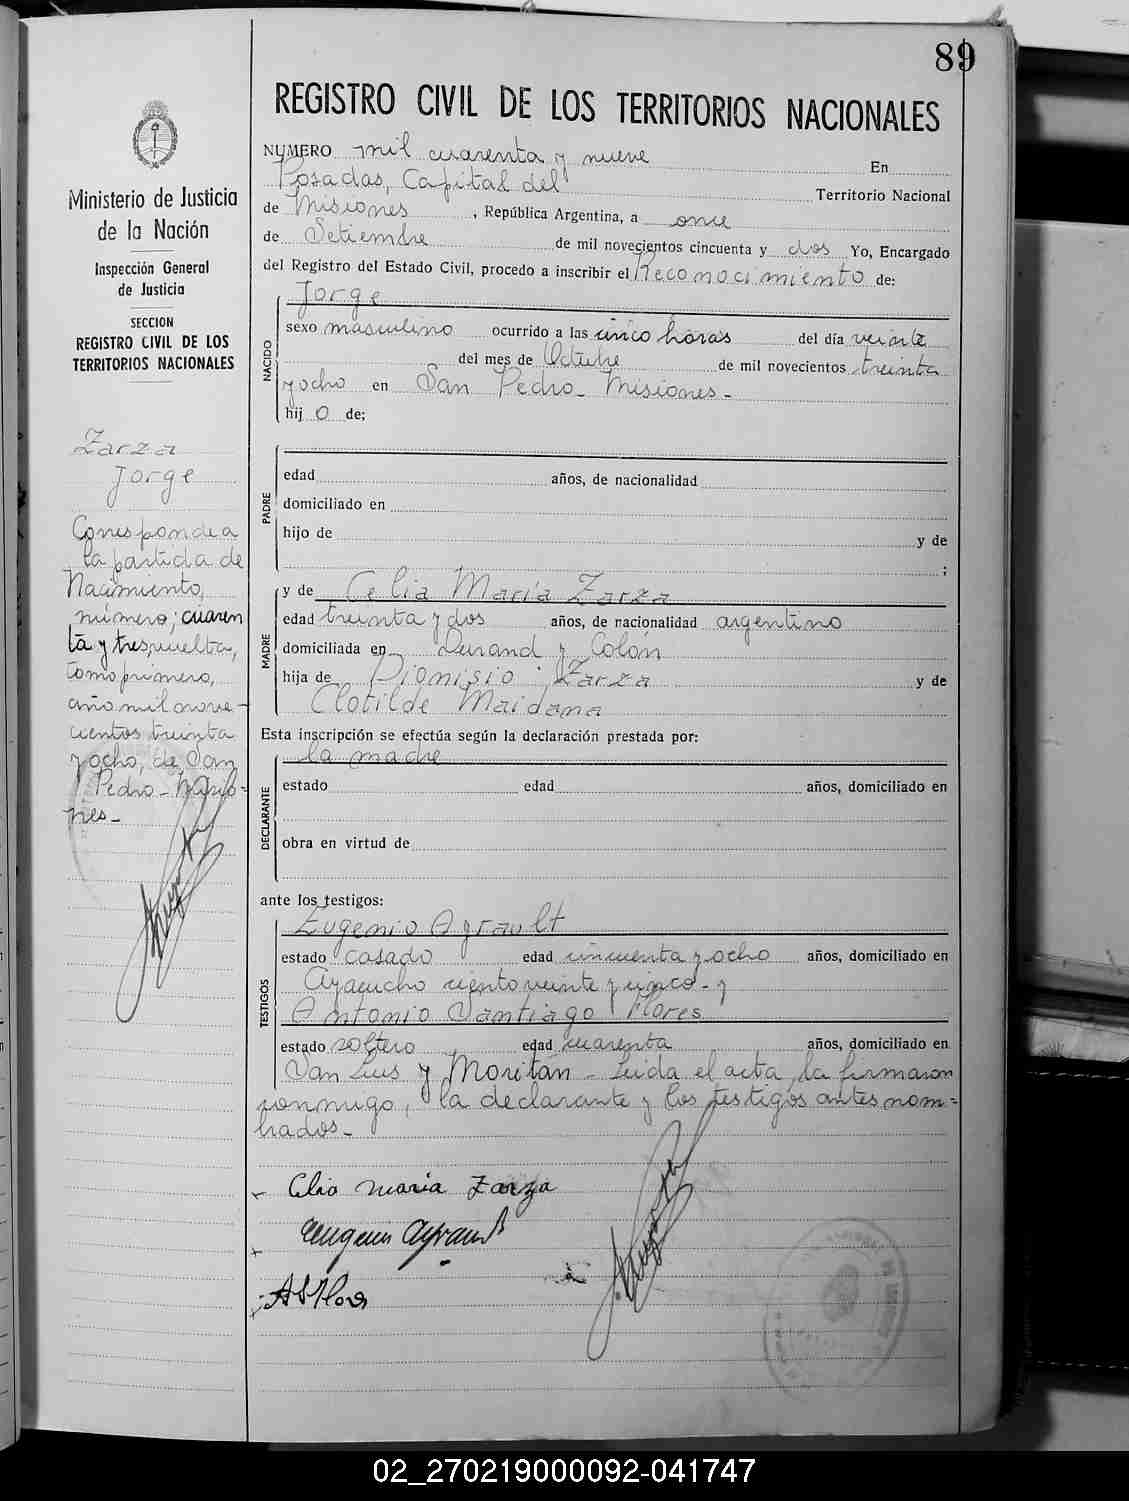 89
REGISTRO CIVIL DE LOS TERRITORIOS NACIONALES
Ministerio de Justicia
de la Nación
Inspección General
de Justicia
SECCION
REGISTRO CIVIL DE LOS
TERRITORIOS NACIONALES
Zarza
Jorge
Corresponde a
la partida de
Nacimiento,
número; cuaren
ta y tres, vuelta,
tomo primero,
año mil nove-
cientos treinta
y ocho, de San
Pedro - Misio=
nes -
NUMERO mil cuarenta y nueve En
Posadas, Capital del Territorio Nacional
de Misiones, República Argentina, a once
de Setiembre de mil novecientos cincuenta y dos Yo, Encargado
del Registro del Estado Civil, procedo a inscribir el Reconocimiento de:
NACIDO
Jorge
sexo masculino ocurrido a las cinco horas del día veinte
del mes de Octubre de mil novecientos treinta
y ocho en San Pedro - Misiones -
hij o de;
PADRE
edad años, de nacionalidad
domiciliado en
hijo de y de
;
MADRE
y de Celia María Zarza
edad treinta y dos años, de nacionalidad argentino
domiciliada en Durand y Colón
hija de Dionisio Zarza y de
Clotilde Maidana
Esta inscripción se efectúa según la declaración prestada por:
DECLARANTE
la madre
estado edad años, domiciliado en
obra en virtud de
ante los testigos:
TESTIGOS
Eugenio Ayrault
estado casado edad cincuenta y ocho años, domiciliado en
Ayacucho ciento veinte y cinco - y
Antonio Santiago Flores
estado soltero edad cuarenta años, domiciliado en
San Luis y Moritán - Leida el acta, la firmaron
conmigo, la declarante y los testigos antes nom=
brados -
Celia maria Zarza
Eugenio Ayrault
ASFlores
02_270219000092-041747